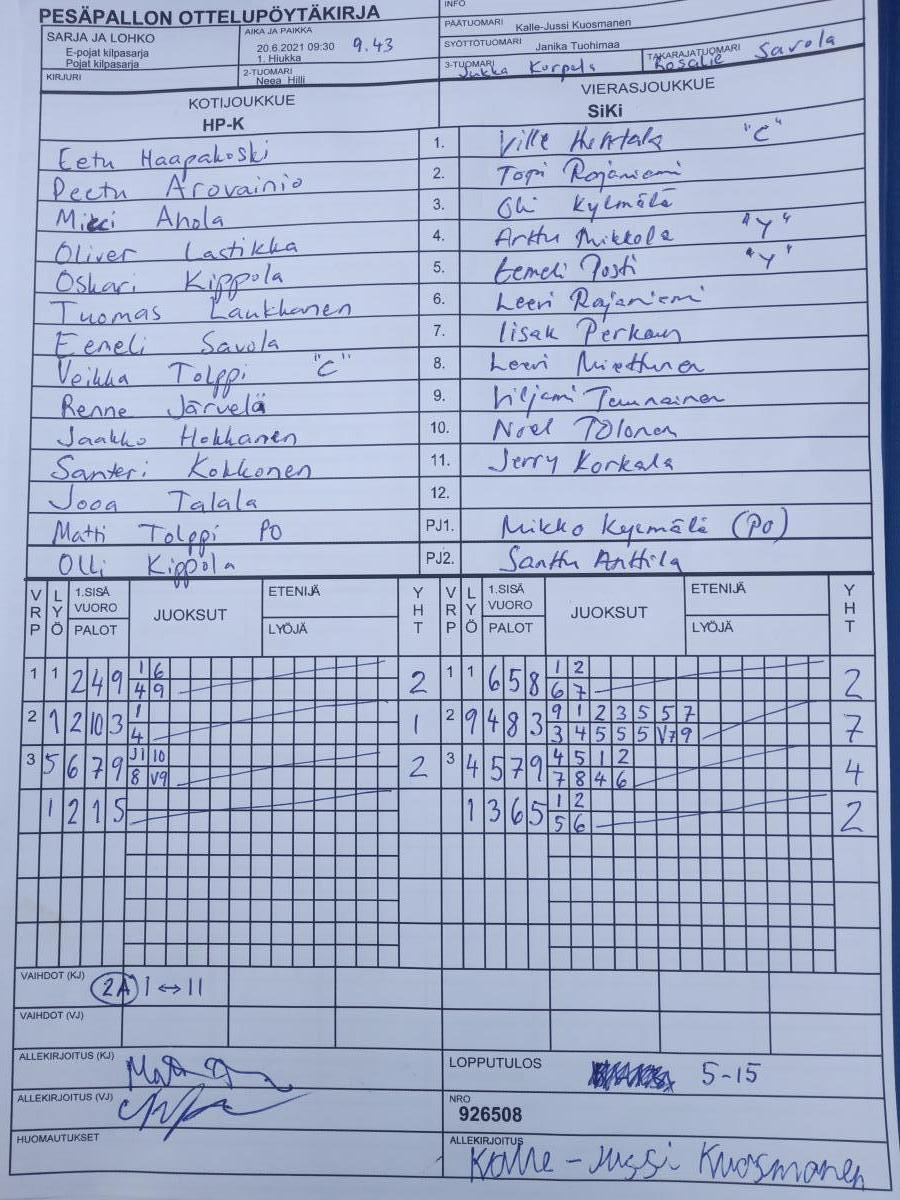 PESÄPALLON OTTELUPÖYTÄKIRJA
INFO
SARJA JA LOHKO
E-pojat kilpasarja
Pojat kilpasarja
AIKA JA PAIKKA
20.6.2021 09:30 9.43
1. Hiukka
PÄÄTUOMARI Kalle-Jussi Kuosmanen
SYÖTTÖTUOMARI Janika Tuohimaa
KIRJURI
2-TUOMARI
Neea Hilli
3-TUOMARI
Jukka Korpela
TAKARAJATUOMARI
Rosalie Savola
KOTIJOUKKUE
HP-K
VIERASJOUKKUE
SiKi
Eetu Haapakoski 1. Ville "C"
Peetu Arovainio 2. Topi Rajaniemi
Mikki Ahola 3. Oli Kylmälä
Oliver Lastikka 4. Arttu Mikkola "Y"
Oskari Kippola 5. Eemeli Posti "Y"
Tuomas Laukkanen 6. Leevi Rajaniemi
Eemeli Savola 7. Iisak
Veikka Tolppi "C" 8. Leevi Miettunen
Renne Järvelä 9. Viljami
Jaakko Hokkanen 10. Noel Tolonen
Santeri Kokkonen 11. Jerry Korkala
Jooa Talala 12.
Matti Tolppi PO PJ1. Mikko Kylmälä (PO)
Olli Kippola PJ2. Santtu Anttila
VRP LYÖ 1.SISÄ VUORO PALOT JUOKSUT ETENIJÄ LYÖJÄ YHT VRP LYÖ 1.SISÄ VUORO PALOT JUOKSUT ETENIJÄ LYÖJÄ YHT
1 1 2 4 9 1 6 2 1 1 6 5 8 1 2 2
4 9 6 7
2 1 2 10 3 1 1 2 9 4 8 3 9 1 2 3 5 5 7 7
4 3 4 5 5 5 V7 9
3 5 6 7 9 J1 10 2 3 4 5 7 9 4 5 1 2 4
8 V9 7 8 4 6
1 2 1 5 1 3 6 5 1 2 2
5 6
VAIHDOT (KJ) 2A I ↔ II
VAIHDOT (VJ)
ALLEKIRJOITUS (KJ)
LOPPUTULOS 5-15
ALLEKIRJOITUS (VJ)
NRO
926508
HUOMAUTUKSET
ALLEKIRJOITUS
Kalle-Jussi Kuosmanen